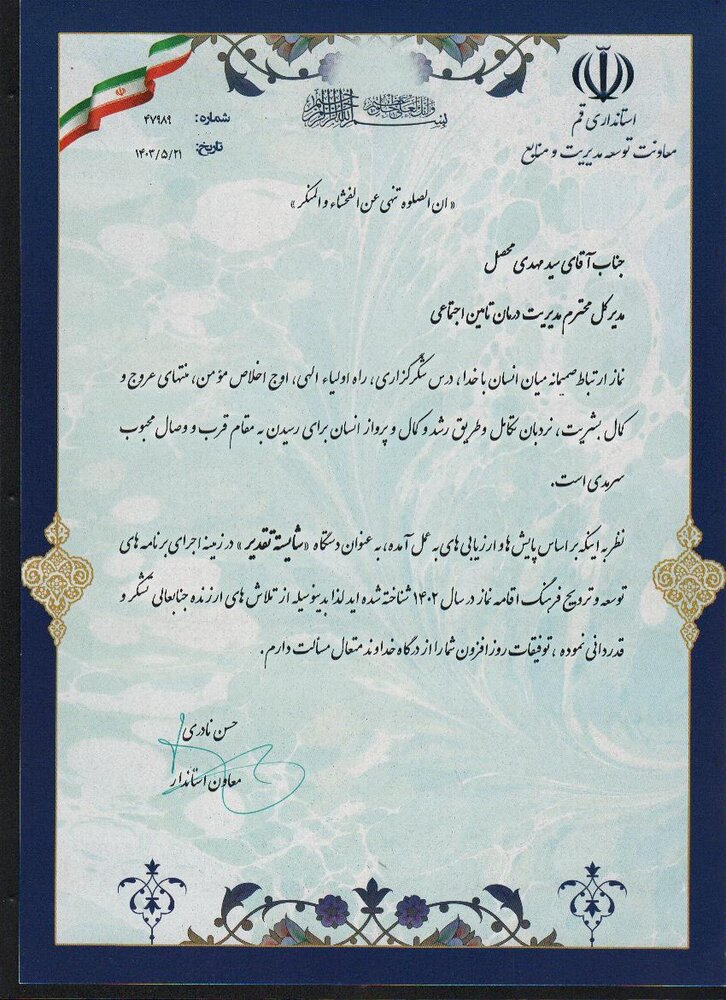 استانداری قم
معاونت توسعه مدیریت و منابع
شماره: ۴۷۹۸۹
تاریخ: ۱۴۰۳/۵/۲۱
بسم الله الرحمن الرحیم
«ان الصلوه تنهی عن الفحشاء و المنکر»
جناب آقای سید مهدی محصل
مدیر کل محترم مدیریت درمان تامین اجتماعی
نماز ارتباط صمیمانه میان انسان با خدا، درس شکرگزاری، راه اولیاء الهی، اوج اخلاص مؤمن، منتهای عروج و
کمال بشریت، نردبان تکامل و طریق رشد و کمال و پرواز انسان برای رسیدن به مقام قرب و وصال محبوب
سرمدی است.
نظر به اینکه بر اساس پایش ها و ارزیابی های به عمل آمده، به عنوان دستگاه «شایسته تقدیر» در زمینه اجرای برنامه های
توسعه و ترویج فرهنگ اقامه نماز در سال ۱۴۰۲ شناخته شده اید لذا بدینوسیله از تلاش های ارزنده جنابعالی تشکر و
قدردانی نموده ، توفیقات روزافزون شما را از درگاه خداوند متعال مسألت دارم.
حسن نادری
معاون استاندار